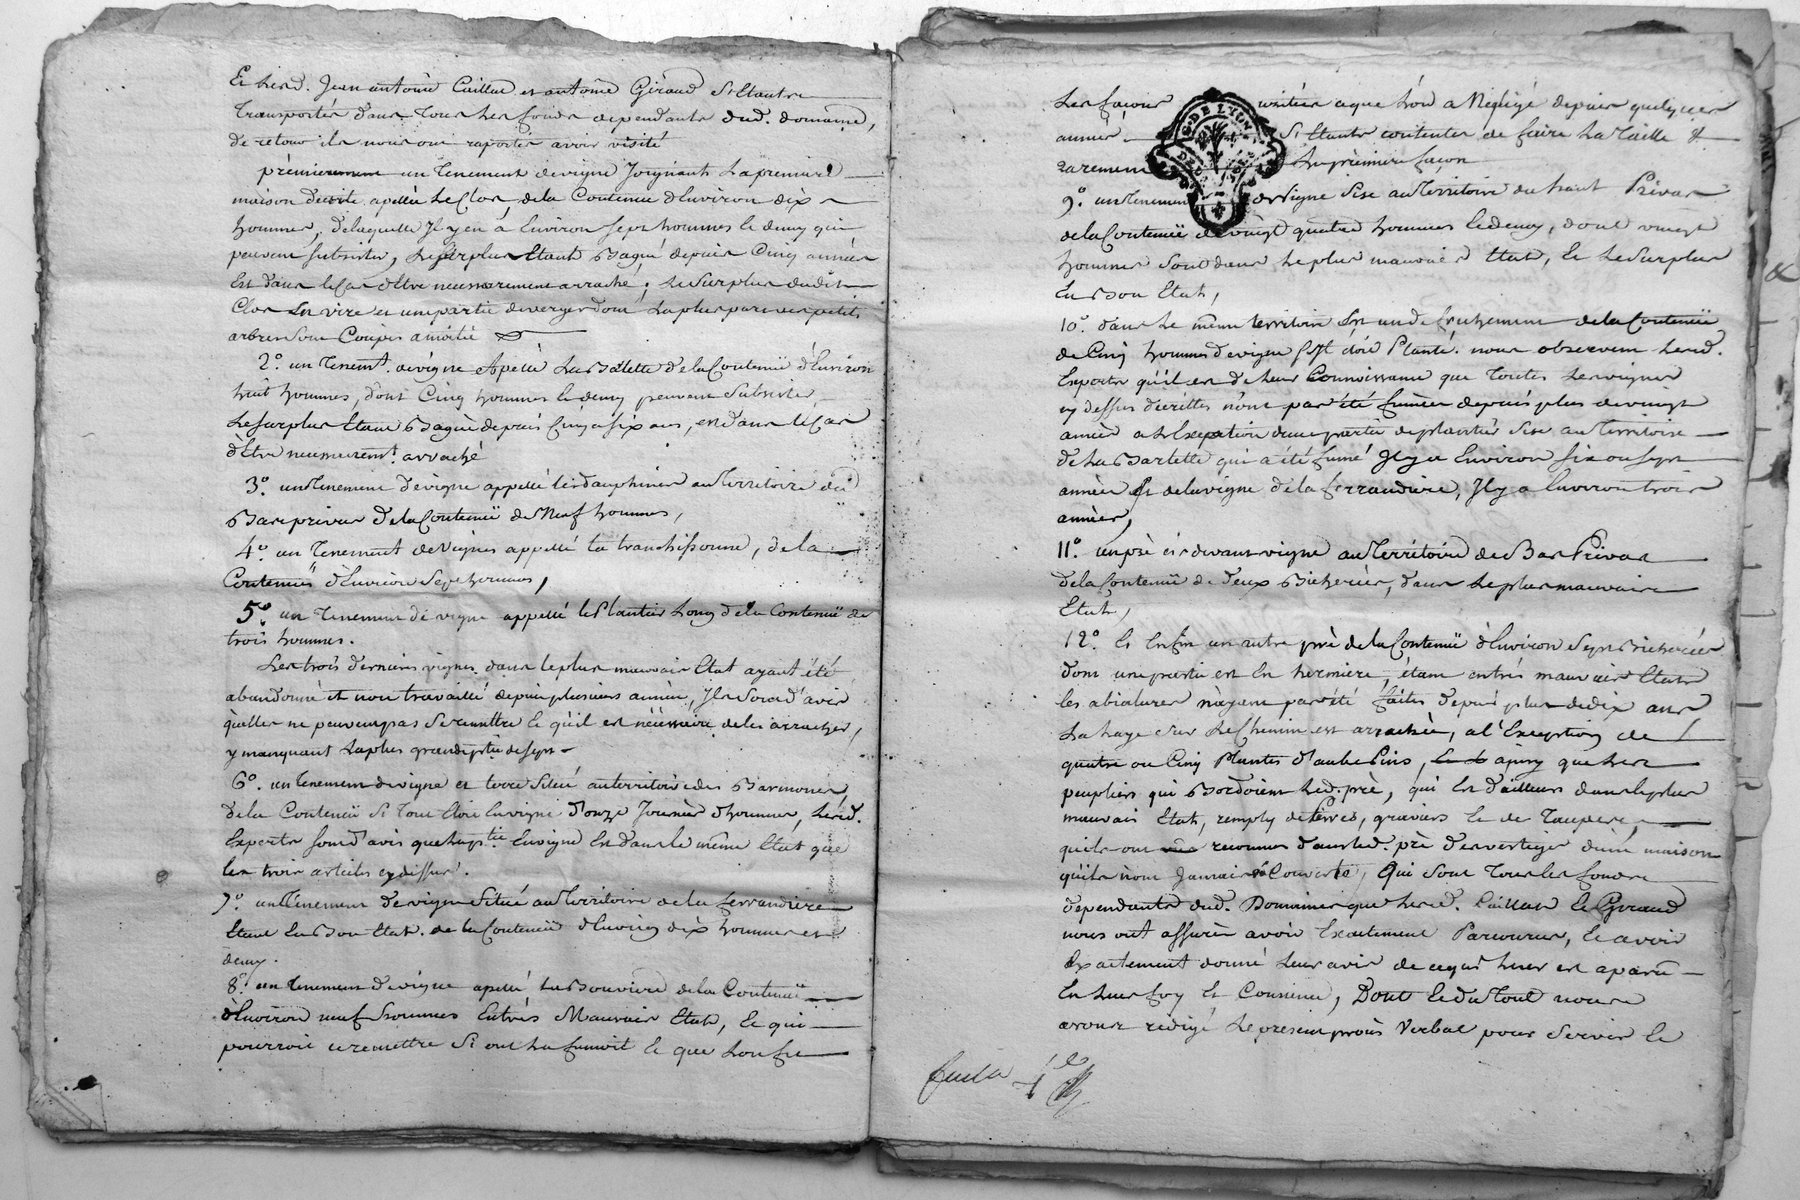 Et lesd. Jean antoine Caillat et antoine Giraud S'Etantre
transportés dans tous les fonds dependants dud. domaine,
de retour ils nous ont raportés avoir visité
prémierement un tenement devigne Joignant la premiere
maison décrite, apellée Le Clos, dela Contenue d'Environ dix
hommes, de laquelle Il y en a Environ sept hommes le demy qui
peuvent subsister, le surplus Etant Bagué depuis Cinq années
Est dans le Cas d'Etre necessairement arraché; le surplus dudit
Clos En vire et un partie de verger dont la plus part des petits
arbres sont Coupés amoitié
2.º un tenemt. devigne Apellé La Balette dela Contenuë d'Environ
huit hommes, dont Cinq hommes le demy peuvent subsister,
le surplus Etant Bagué depuis Cinq a six ans, est dans le Cas
d'Etre necessairemt. arraché
3.º un tenement devigne appellé les dauphines au territoire du
Bas privas de la Contenuë de Neuf hommes,
4.º un tenement de Vignes appellé la tranchissonne, de la
Contenuë d'Environ Sept hommes,
5.º un tenement devigne appellé le Plantier Long dela Contenuë de
trois hommes.
Les trois dernieres vignes dans le plus mauvais Etat ayant été
abandonné et non travaillé depuis plusieurs années, Ils sont d'avis
qu'elles ne peuvent pas se remettre Et qu'il est nécessaire de les arracher,
y manquant la plus grande ptie de seps
6.º un tenement devigne et terre Situé au territoire des Barmones,
de la Contenuë Si tout Etoit En vigne d'onze Journées d'hommes, lesd.
Experts sont d'avis que la ptie En vigne Est dans le même Etat que
les trois articles cydessus.
7.º un tenement de vigne Situé au territoire de la ferrandiere
Etant En Bon Etat. de la Contenuë d'Environ dix hommes et
demy.
8.º un tenement devigne apellé la Bouviere de la Contenuë
d'Environ neuf hommes En très Mauvais Etat, Et qui
pourroit se remettre Si on la fumoit Et que l'on fit
les façons usitées ceque l'on a Négligé depuis quelques
années S'Etants contentés de faire la taille &
rarement la premiere façon
G. DE LYON
9.º un tenement de Vigne Sise au territoire du haut Privas
de la Contenuë de vingt quatre hommes le demy, dont vingt
hommes sont dans le plus mauvais Etat, Et le Surplus
En Bon Etat,
10.º dans le même territoire Est un defrichement de la Contenuë
de Cinq hommes devigne S'il étoit Planté. nous observent lesd.
Experts qu'il est de leur Connoissance que toutes les vignes
cy dessus décrittes n'ont pas été fumées depuis plus de vingt
années a l'Exception d'une partie de plantier Sise au territoire
de la Barlette qui a été fumé Il y a Environ six ou sept
années Et de la vigne de la ferrandiere, Il y a Environ trois
années,
11.º un pré ci devant vigne au territoire de Bas Privas
de la Contenuë de deux Bicherées, dans le plus mauvais
Etat,
12.º Et Enfin un autre pré de la Contenuë d'Environ Sept Bicherées
dont une partie est En hermiere, étant en très mauvais Etat
les abialures n'ayant pas été faites depuis plus de dix ans
La haye sur le Chemin est arrachée, a l'Exception de
quatre ou Cinq Plantes d'aube Pins, ainsy que les
peupliers qui Bordoient led. pré, qui Est d'ailleurs dans le plus
mauvais Etat, remply de Pierres, graviers Et de Taupere,
qu'ils ont reconnus dans led. pré des vestiges d'une maison
qu'ils n'ont Jamais vû Couverte, Qui sont tous les fonds
dependants dud. Domaine que lesd. Caillat Et Giraud
nous ont assurés avoir Exactement Parcourus, Et avoir
Exactement donné leur avis de ce qui leur est aparu
En leur foy Et Consience, Dont Et du tout nous
avons rédigé le present procès Verbal pour servir Et